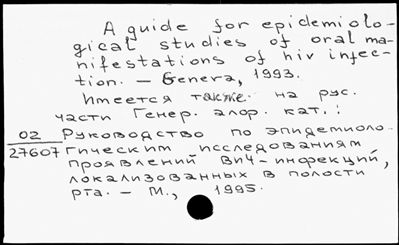 A guide for epidemiolo-
gical studies of oral ma-
nifestations of hiv infec-
tion. — Genera, 1993.
Имеется также на рус.
части Генер. алор. кат.:
02 Руководство по эпидемиоло
27607 гическим исследованиям
проявлений ВИЧ-инфекций,
локализованных в полости
рта. — М., 1995.